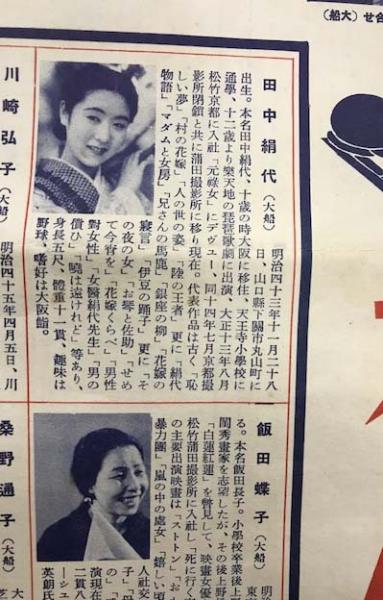 合せ(大船)
田中絹代(大船)
明治四十三年十一月二十八
日、山口縣下關市丸山町に
出生。本名田中絹代、十歳の時大阪に移住、天王寺小學校に
通學、十二歳より樂天地の琵琶歌劇に出演、大正十三年八月
松竹京都に入社「元祿女」にデヴュー、同十四年七月京都撮
影所閉鎖と共に蒲田撮影所に移り現在。代表作品は古く「恥
しい夢」「村の花嫁」「人の世の姿」「陸の王者」更に「絹代
物語」「マダムと女房」「兄さんの馬鹿」「銀座の柳」「花嫁の
寢言」「伊豆の踊子」更に「そ
の夜の女」「お琴と佐助」「せめ
て今宵を」「花嫁くらべ」「男性
對女性」「女醫絹代先生」「男の
償ひ」「曉は遠けれど」等あり、
身長五尺、體重十一貫、趣味は
野球、嗜好は大阪鮨。
川崎弘子(大船)
明治四十五年四月五日、川
飯田蝶子(大船)
る。本名飯田長子。小學校卒業後上野
閨秀畫家を志望したが、その後上野
「白蓮紅蓮」を瞥見して、映畫女優
松竹蒲田撮影所に入社し「死に行く
の主要出演映畫は「ストトン」「お
暴力團」「嵐の中の處女」「嬉しい頃
人社交
子」「母
の」「
演現在
二貫八
ーシュ
英朗氏
桑野通子(大船)